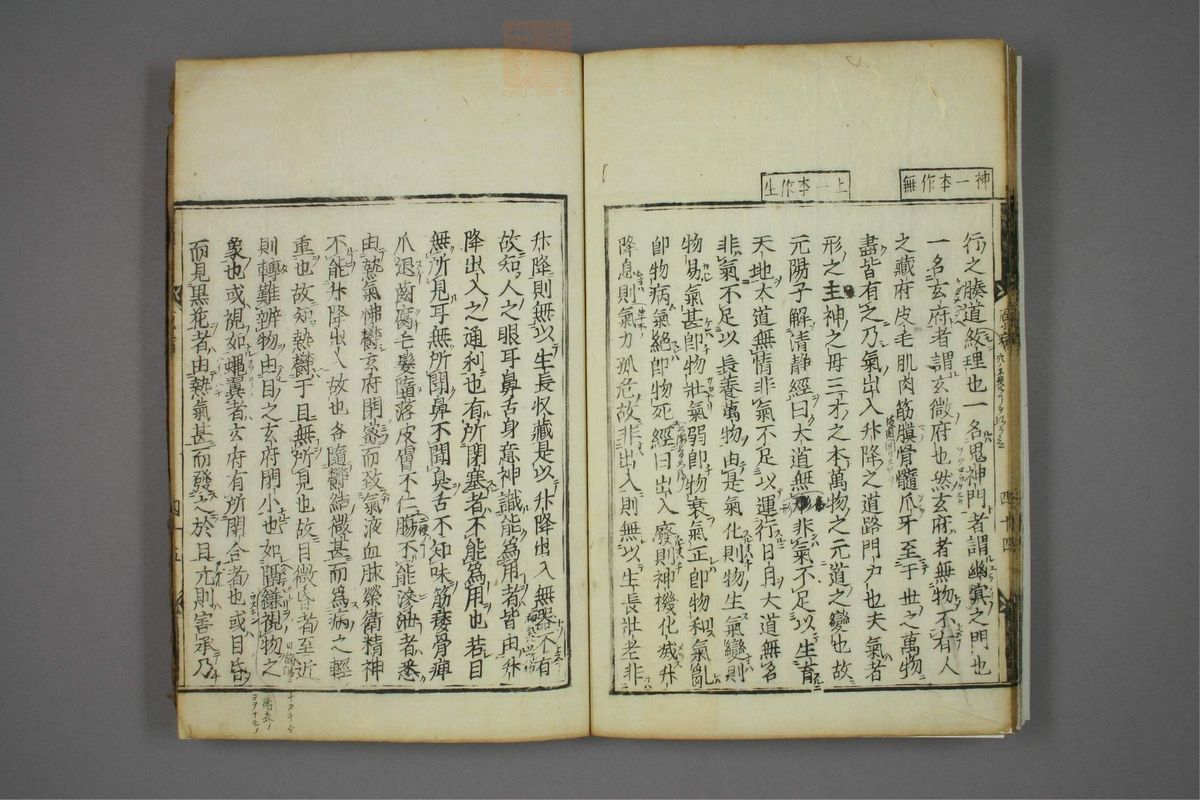 神一本作無
上一本作生
行之腠道紋理也一名鬼神門者謂幽冥之門也
一名玄府者謂玄微府也然玄府者無物不有人
之藏府皮毛肌肉筋膜骨髓爪牙至于世之萬物
盡皆有之乃氣出入升降之道路門戶也夫氣者
形之主神之母三才之本萬物之元道之變也故
元陽子解清静經曰大道無非氣不足以生育
天地大道無情非氣不足以運行日月大道無名
非氣不足以長養萬物由是氣化則物生氣變則
物易氣甚卽物壯氣弱卽物衰氣正卽物和氣亂
卽物病氣絶卽物死經曰出入廢則神機化滅升
降息則氣力孤危故非出入則無以生長壯老非
升降則無以生長収藏是以升降出入無器不有
故知人之眼耳鼻舌身意神識能爲用者皆由升
降出入之通利也有所閉塞者不能爲用也若目
無所見耳無所聞鼻不聞臭舌不知味筋痿骨痺
爪退齒腐毛髮墮落皮膚不仁腸不能滲泄者悉
由熱氣怫鬱玄府閉密而致氣液血脉榮衛精神
不能升降出入故也各隨鬱結微甚而爲病之輕
重也故知熱鬱于目無所見也故目微昏者至近
則轉難辨物由目之玄府閉小也如隔縑視物之
象也或視如蠅翼者玄府有所閉合者也或目昏
而見黒花者由熱氣甚而發之於目亢則害承乃
四十四
四十五